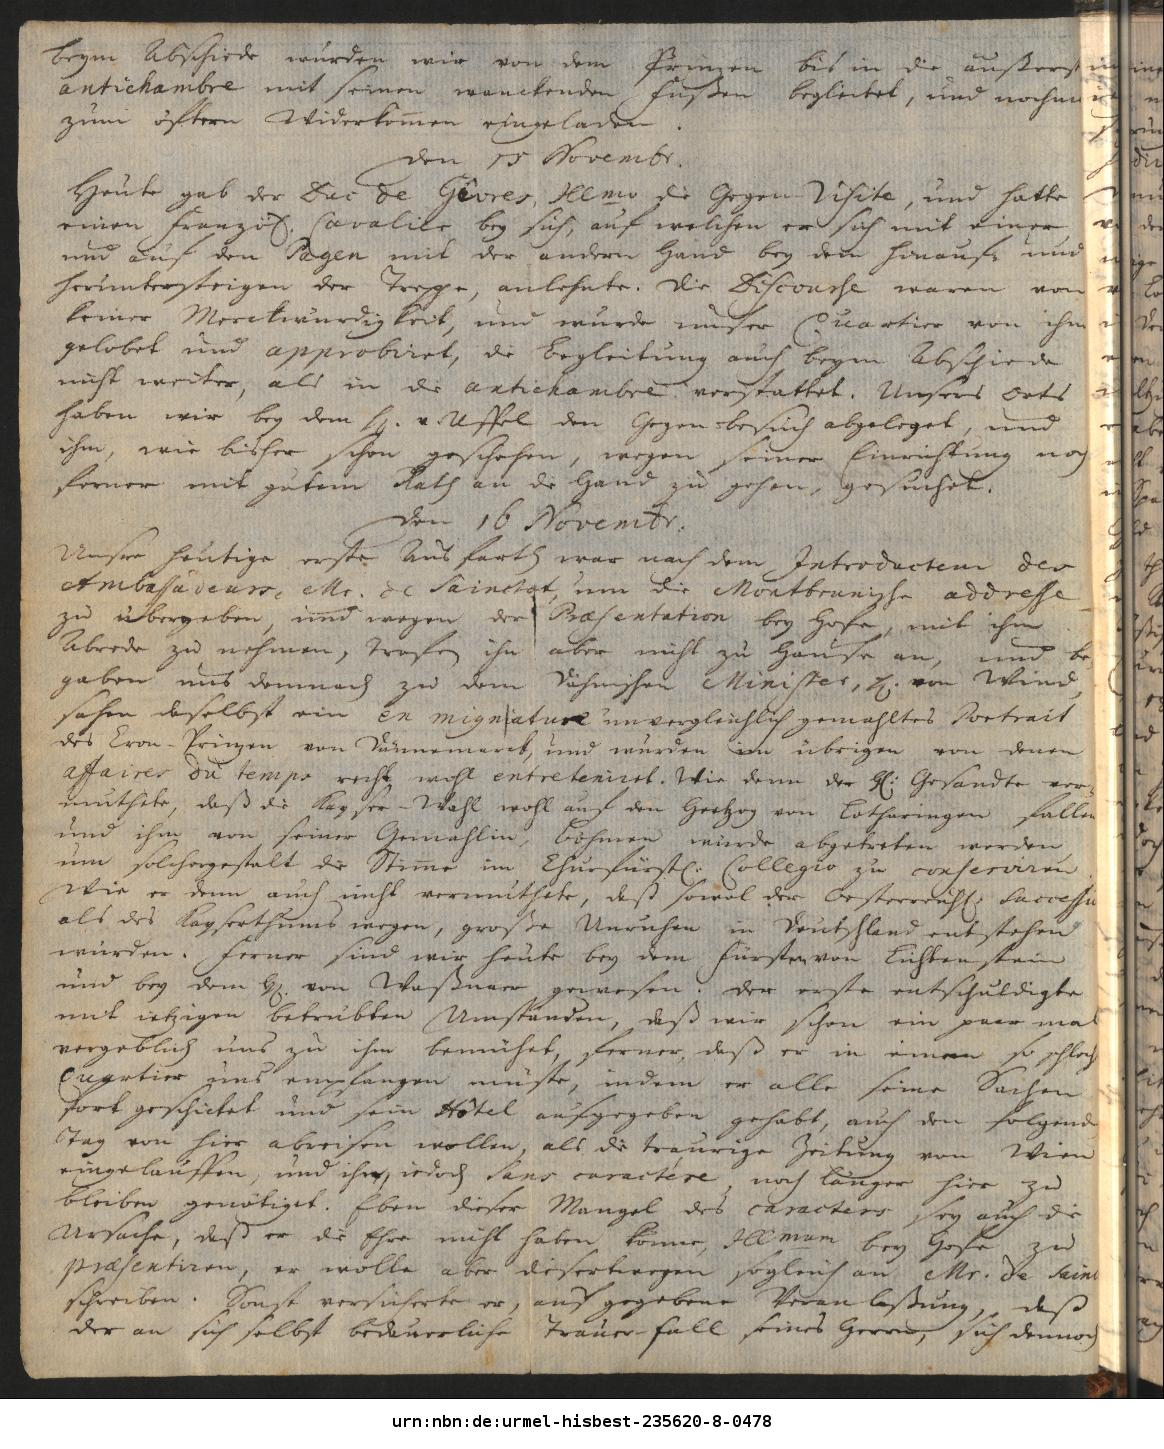 beym Abschiede wurden wir von dem Prinzen bis in die äußerste
antichambre mit seinen wanckenden Füßen begleitet, und nochmals
zum öftern Widerkom̅en eingeladen.
den 15 Novembr.
Heute gab der Duc de Gêvres, Illmo die Gegen-Visite, und hatte
einen französ. Cavalier bey sich, auf welchen er sich mit einer
und auf den Pagen mit der andern Hand bey dem hinauf- und
herunter steigen der Treppe, anlehnte. Die Discourse waren von
keiner Merckwürdigkeit, und wurde unser Quartier von ihm
gelobet und approbiret, die Begleitung auch beym Abschiede
nicht weiter, als in die antichambre verstattet. Unsers Orts
haben wir bey dem H. v. Uffel den Gegenbesuch abgeleget, und
ihm, wie bisher schon geschehen, wegen seiner Einrichtung noch
ferner mit gutem Rath an die Hand zu gehen, gesuchet.
den 16 Novembr.
Unsre heutige erste Ausfarth war nach dem Introducteur des
Ambassadeurs, Mr. de Sainctot, um die Montbrunische addresse
zu übergeben, und wegen der Præsentation bey Hofe, mit ihm
Abrede zu nehmen, trafen ihn aber nicht zu Hause an, und be-
gaben uns demnach zu dem Dähnischen Minister, H. von Wind,
sahen daselbst ein en migniature unvergleichlich gemahltes Portrait
des Cron-Prinzen von Dännemarck, und wurden im übrigen von denen
affaires du temps recht wohl entreteniret. Wie denn der H. Gesandte ver-
muthete, daß die Kayser-Wahl wohl auf den Hertzog von Lotharingen fallen
und ihm von seiner Gemahlin, Böhmen würde abgetreten werden
um solchergestalt die Stim̅e im Churfürstl. Collegio zu conserviren.
Wie er denn auch nicht vermuthete, daß sowol der Oesterreichl. Succession
als des Kayserthums wegen, große Unruhen in Deutschland entstehen
würden. Ferner sind wir heute bey dem Fürsten von Lichtenstein
und bey dem H. von Waßnaer gewesen. Der erste entschuldigte
mit ietzigen betrübten Umständen, daß wir schon ein paar mal
vergeblich uns zu ihm bemühet, ferner, daß er in einem so schlech
Quartier uns empfangen müste, indem er alle seine Sachen
fort geschicket und sein Hôtel aufgegeben gehabt, auch den folgenden
Tag von hier abreisen wollen, als die traurige Zeitung von Wien
eingelauffen, und ihn, iedoch sans caractère, noch länger hier zu
bleiben genötiget. Eben dieser Mangel des caracters sey auch die
Ursache, daß er die Ehre nicht haben könne, Illmum bey Hofe zu
præsentiren, er wolle aber dieserwegen sogleich an Mr. de Sainc
schreiben. Sonst versicherte er, auf gegebene Veranlaßung, daß
der an sich selbst bedauerliche Trauer-Fall seines Herrn, sich dennoch
urn:nbn:de:urmel-hisbest-235620-8-0478